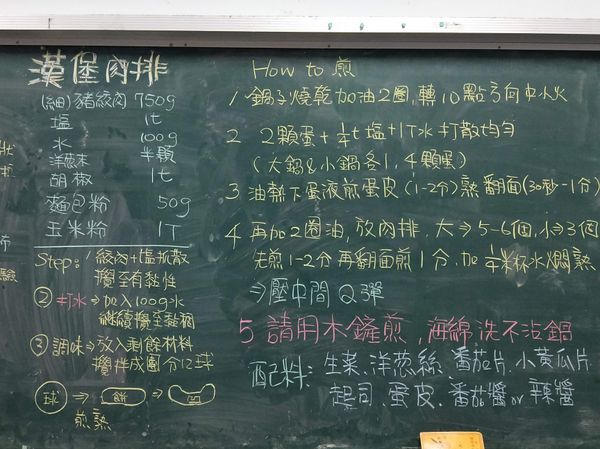 漢堡肉排
(細)豬絞肉 750g
塩 1t
水 100g
洋蔥末 半顆
胡椒 1t
麵包粉 50g
玉米粉 1T
Step: 1 絞肉+塩抓散
攪至有黏性
② 打水⇒加入100g水
繼續攪至黏稠
③ 調味⇒放入剩餘材料
攪拌成團分12球
球 ⇒ 餅 ⇒ 凹
煎熟
How to 煎
1 鍋子燒乾加油2圈,轉10點方向中小火
2 2顆蛋+1/4t塩+1T水 打散均勻
(大鍋&小鍋各1,4顆蛋)
3 油熱下蛋液煎蛋皮(1-2分)熟翻面(30秒-1分)
4 再加2圈油,放肉排,大⇒5-6個,小⇒3個
先煎1-2分再翻面煎1分,加1/4米杯水燜熟
⇒壓中間Q彈
5 請用木鏟煎,海綿洗不沾鍋
配料: 生菜.洋蔥絲.番茄片.小黃瓜片
起司.蛋皮.番茄醬or辣醬